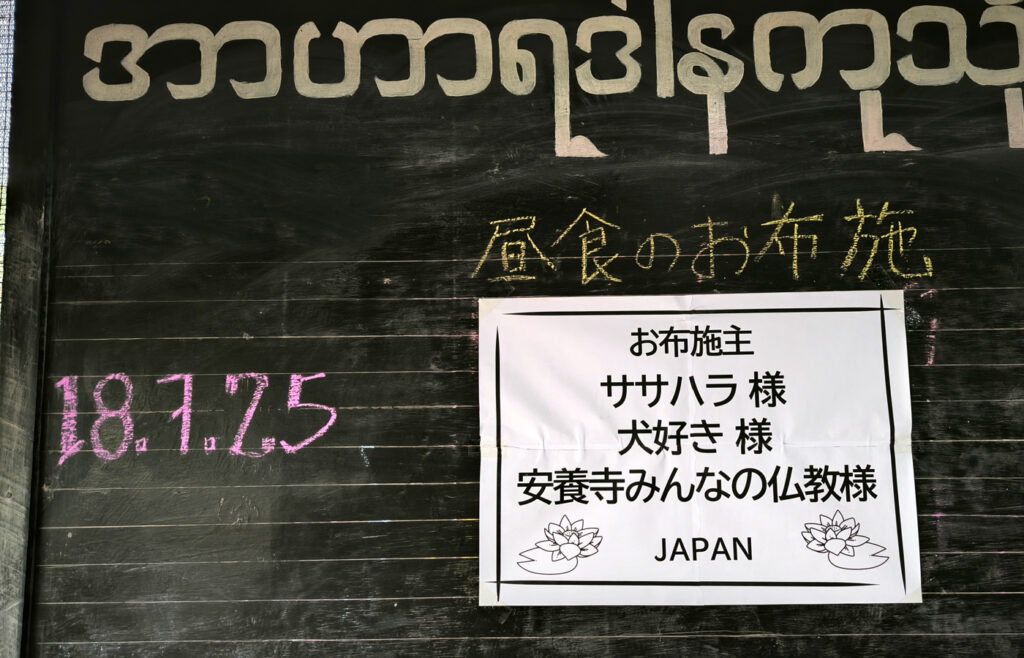 အာဟာရဒါနကုသို
昼食のお布施
18.7.25
お布施主
ササハラ 様
犬好き 様
安養寺みんなの仏教様
JAPAN